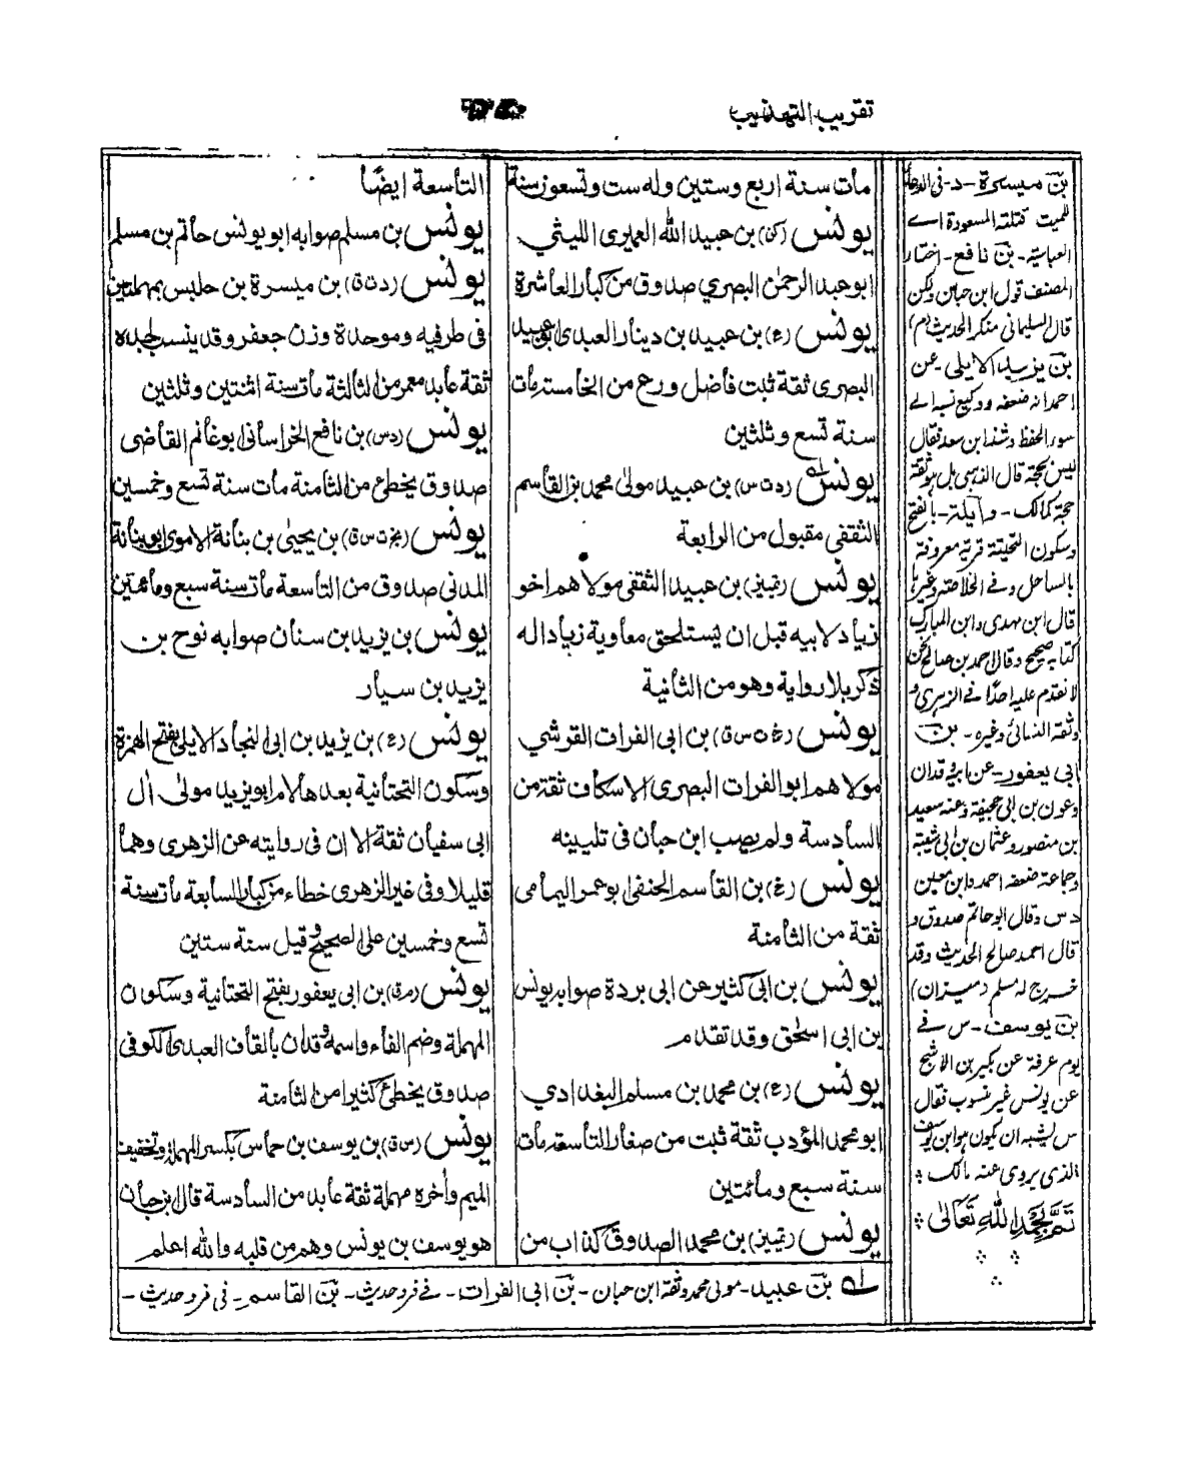 تقریب التہذیب
مات سنة اربع وستین وله ست وتسعون سنة
یونس (کن) بن عبید الله العمیری اللیثی
ابو عبد الرحمٰن البصری صدوق من کبار العاشرة
یونس (ع) بن عبید بن دینار العبدی ابو عبید
البصری ثقة ثبت فاضل ورع من الخامسة مات
سنة تسع وثلثین
یونس (د ت س) بن عبید مولیٰ محمد بن القاسم
الثقفی مقبول من الرابعة
یونس (تمییز) بن عبید الثقفی مولاهم اخو
زیاد لابیه قبل ان یستلحق معاویة زیادا له
ذکر بلا روایة وهو من الثانیة
یونس (خ ت س ق) بن ابی الفرات القرشی
مولاهم ابو الفرات البصری الاسکاف ثقة من
السادسة ولم یصب ابن حبان فی تلیینه
یونس (خ) بن القاسم الحنفی ابو عمر الیمامی
ثقة من الثامنة
یونس بن ابی کثیر عن ابی بردة صوابه یونس
بن ابی اسحٰق وقد تقدم
یونس (ع) بن محمد بن مسلم البغدادی
ابو محمد المؤدب ثقة ثبت من صغار التاسعة مات
سنة سبع ومائتین
یونس (تمییز) بن محمد الصدوق کذاب من
التاسعة ایضًا
یونس بن مسلم صوابه ابو یونس حاتم بن مسلم
یونس (د ت ق) بن میسرة بن حلبس بمهملتین
فی طرفیه وموحدة وزن جعفر وقد ینسب لجده
ثقة عابد معمر من الثالثة مات سنة اثنتین وثلثین
یونس (د س) بن نافع الخراسانی ابو غانم القاضی
صدوق یخطئ من الثامنة مات سنة تسع وخمسین
یونس (بخ ت س ق) بن یحییٰ بن بنانة الاموی ابو بنانة
المدنی صدوق من التاسعة مات سنة سبع ومائتین
یونس بن یزید بن سنان صوابه نوح بن
یزید بن سیار
یونس (ع) بن یزید بن ابی النجاد الایلی بفتح الهمزة
وسکون التحتانیة بعدها لام ابو یزید مولیٰ آل
ابی سفیان ثقة الا ان فی روایته عن الزهری وهما
قلیلا وفی غیر الزهری خطاء من کبار السابعة مات سنة
تسع وخمسین علی الصحیح وقیل سنة ستین
یونس (م ق) بن ابی یعفور بفتح التحتانیة وسکون
المهملة وضم الفاء واسمه وقدان بالقاف العبدی الکوفی
صدوق یخطئ کثیرا من الثامنة
یونس (س ق) بن یوسف بن حماس بکسر المهملة وتخفیف
المیم وآخره مهملة ثقة عابد من السادسة قال ابن حبان
هو یوسف بن یونس وهم من قلبه والله اعلم
بن میسرة - د - فی الدعاء
للمیت قتلته المسعودة اے
العباسیة - بن نافع - اختار
المصنف قول ابن حبان ولکن
قال السلیمانی منکر الحدیث (م)
بن یزید الایلی - عن
احمد انه ضعفه ووکیع نسبه الے
سوء الحفظ وشذ ابن سعد فقال
لیس بحجة قال الذهبی بل هو ثقة
حجة کمالک - وایلة - بالفتح
وسکون التحتیة قریة معروفة
بالساحل وفے الخلاصة وغیره
قال ابن مهدی وابن المبارک
کتابه صحیح وقال احمد بن صالح نحن
لا نقدم علیه احدًا فے الزهری و
وثقه النسائی وغیره - بن
ابی یعفور - عن ابیه وقدان
وعون بن ابی جحیفة وعنه سعید
بن منصور وعثمان بن ابی شیبة
وجماعة ضعفه احمد وابن معین
د س وقال ابو حاتم صدوق و
قال احمد صالح الحدیث وقد
خرج له مسلم (میزان)
بن یوسف - س فے
یوم عرفة عن بکیر بن الاشج
عن یونس غیر منسوب فقال
س یشبه ان یکون هو ابن یوسف
الذی یروی عنه مالک
تَمَّ بِحَمْدِ اللّٰهِ تَعَالٰی
له بن عبید - مولی محمد وثقه ابن حبان - بن ابی الفرات - فے فرد حدیث - بن القاسم - فی فرد حدیث -